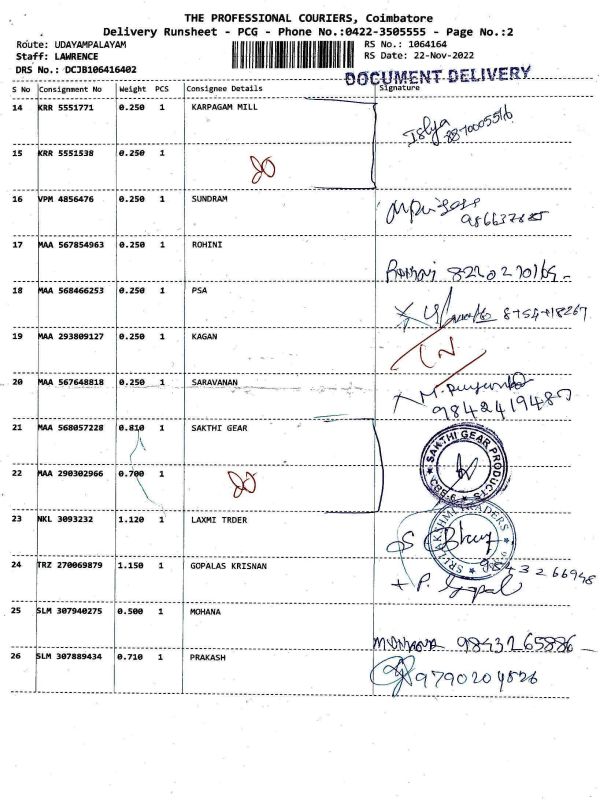 THE PROFESSIONAL COURIERS, Coimbatore
Delivery Runsheet - PCG - Phone No.:0422-3505555 - Page No.:2
Route: UDAYAMPALAYAM RS No.: 1064164
Staff: LAWRENCE RS Date: 22-Nov-2022
DRS No.: DCJB106416402 DOCUMENT DELIVERY
S No Consignment No Weight PCS Consignee Details Signature
14 KRR 5551771 0.250 1 KARPAGAM MILL
15 KRR 5551538 0.250 1
16 VPM 4856476 0.250 1 SUNDRAM
17 MAA 567854963 0.250 1 ROHINI
8220270169
18 MAA 568466253 0.250 1 PSA
19 MAA 293809127 0.250 1 KAGAN
20 MAA 567648818 0.250 1 SARAVANAN
21 MAA 568057228 0.810 1 SAKTHI GEAR
SAKTHI GEAR PRODUCTS
22 MAA 290302966 0.700 1
23 NKL 3093232 1.120 1 LAXMI TRDER
SRI LAKSHMI TRADERS
24 TRZ 270069879 1.150 1 GOPALAS KRISNAN
9843266948
P. Gopal
25 SLM 307940275 0.500 1 MOHANA
9843265886
26 SLM 307889434 0.710 1 PRAKASH
9790204826